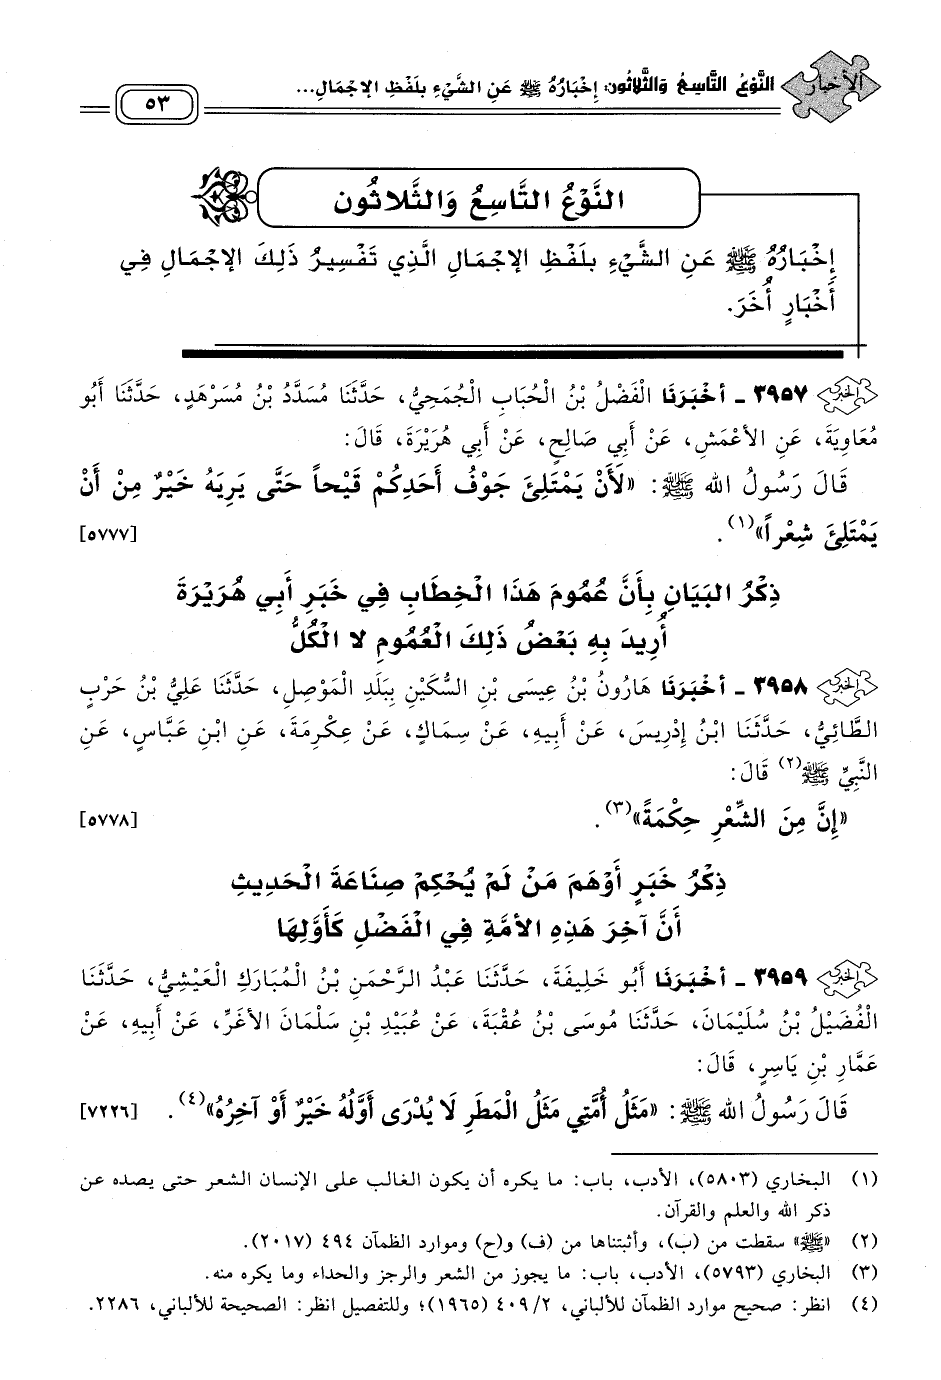 الأخبار النَّوْعُ التَّاسِعُ وَالثَّلاثُون: إِخْبَارُهُ ﷺ عَنِ الشَّيْءِ بِلَفْظِ الإِجْمَالِ...
٥٣
النَّوْعُ التَّاسِعُ وَالثَّلاثُون
إِخْبَارُهُ ﷺ عَنِ الشَّيْءِ بِلَفْظِ الإِجْمَالِ الَّذِي تَفْسِيرُ ذَلِكَ الإِجْمَالِ فِي
أَخْبَارٍ أُخَرَ.
الخبر ٣٩٥٧ ـ أخْبَرَنَا الْفَضْلُ بْنُ الْحُبَابِ الْجُمَحِيُّ، حَدَّثَنَا مُسَدَّدُ بْنُ مُسَرْهَدٍ، حَدَّثَنَا أَبُو
مُعَاوِيَةَ، عَنِ الأَعْمَشِ، عَنْ أَبِي صَالِحٍ، عَنْ أَبِي هُرَيْرَةَ، قَالَ:
قَالَ رَسُولُ الله ﷺ: «لَأَنْ يَمْتَلِئَ جَوْفُ أَحَدِكُمْ قَيْحاً حَتَّى يَرِيَهُ خَيْرٌ مِنْ أَنْ
يَمْتَلِئَ شِعْراً»(١). [٥٧٧٧]
ذِكْرُ البَيَانِ بِأَنَّ عُمُومَ هَذَا الْخِطَابِ فِي خَبَرِ أَبِي هُرَيْرَةَ
أُرِيدَ بِهِ بَعْضُ ذَلِكَ الْعُمُومِ لا الْكُلُّ
الخبر ٣٩٥٨ ـ أخْبَرَنَا هَارُونُ بْنُ عِيسَى بْنِ السُّكَيْنِ بِبَلَدِ الْمَوْصِلِ، حَدَّثَنَا عَلِيُّ بْنُ حَرْبٍ
الطَّائِيُّ، حَدَّثَنَا ابْنُ إِدْرِيسَ، عَنْ أَبِيهِ، عَنْ سِمَاكٍ، عَنْ عِكْرِمَةَ، عَنِ ابْنِ عَبَّاسٍ، عَنِ
النَّبِيِّ ﷺ(٢) قَالَ:
«إِنَّ مِنَ الشِّعْرِ حِكْمَةً»(٣). [٥٧٧٨]
ذِكْرُ خَبَرٍ أَوْهَمَ مَنْ لَمْ يُحْكِمْ صِنَاعَةَ الْحَدِيثِ
أَنَّ آخِرَ هَذِهِ الأمَّةِ فِي الْفَضْلِ كَأَوَّلِهَا
الخبر ٣٩٥٩ ـ أخْبَرَنَا أَبُو خَلِيفَةَ، حَدَّثَنَا عَبْدُ الرَّحْمَنِ بْنُ الْمُبَارَكِ الْعَيْشِيُّ، حَدَّثَنَا
الْفُضَيْلُ بْنُ سُلَيْمَانَ، حَدَّثَنَا مُوسَى بْنُ عُقْبَةَ، عَنْ عُبَيْدِ بْنِ سَلْمَانَ الأَغَرِّ، عَنْ أَبِيهِ، عَنْ
عَمَّارِ بْنِ يَاسِرٍ، قَالَ:
قَالَ رَسُولُ الله ﷺ: «مَثَلُ أُمَّتِي مَثَلُ الْمَطَرِ لَا يُدْرَى أَوَّلُهُ خَيْرٌ أَوْ آخِرُهُ»(٤). [٧٢٢٦]
(١) البخاري (٥٨٠٣)، الأدب، باب: ما يكره أن يكون الغالب على الإنسان الشعر حتى يصده عن
ذكر الله والعلم والقرآن.
(٢) «ﷺ» سقطت من (ب)، وأثبتناها من (ف) و(ح) وموارد الظمآن ٤٩٤ (٢٠١٧).
(٣) البخاري (٥٧٩٣)، الأدب، باب: ما يجوز من الشعر والرجز والحداء وما يكره منه.
(٤) انظر: صحيح موارد الظمآن للألباني، ٤٠٩/٢ (١٩٦٥)؛ وللتفصيل انظر: الصحيحة للألباني، ٢٢٨٦.